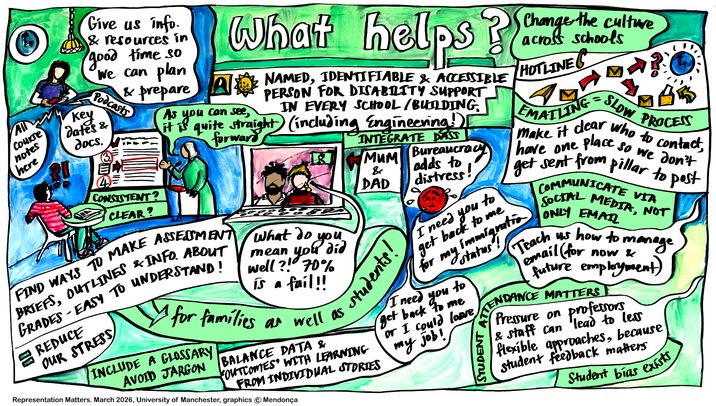 What helps?
Give us info.
& resources in
good time so
we can plan
& prepare
Podcasts
All
course
notes
here
Key
dates &
docs.
As you can see,
it is quite straight
forward
CONSISTENT?
CLEAR?
NAMED, IDENTIFIABLE & ACCESSIBLE
PERSON FOR DISABILITY SUPPORT
IN EVERY SCHOOL/BUILDING.
(including Engineering!)
INTEGRATE DASS
MUM
&
DAD
Bureaucracy
adds to
distress!
Change the culture
across schools
HOTLINE
EMAILING = SLOW PROCESS
Make it clear who to contact,
have one place so we don't
get sent from pillar to post
COMMUNICATE VIA
SOCIAL MEDIA, NOT
ONLY EMAIL
Teach us how to manage
email (for now &
future employment)
I need you to
get back to me
for my immigration
status!
What do you
mean you did
well?!' 70%
is a fail!!
FIND WAYS TO MAKE ASSESSMENT
BRIEFS, OUTLINES & INFO. ABOUT
GRADES - EASY TO UNDERSTAND!
for families as well as students!
= REDUCE
OUR STRESS
I need you to
get back to me
or I could lose
my job!
STUDENT ATTENDANCE MATTERS
Pressure on professors
& staff can lead to less
flexible approaches, because
student feedback matters
Student bias exists
INCLUDE A GLOSSARY
AVOID JARGON
BALANCE DATA &
'OUTCOMES' WITH LEARNING
FROM INDIVIDUAL STORIES
Representation Matters. March 2026, University of Manchester, graphics © Mendonça